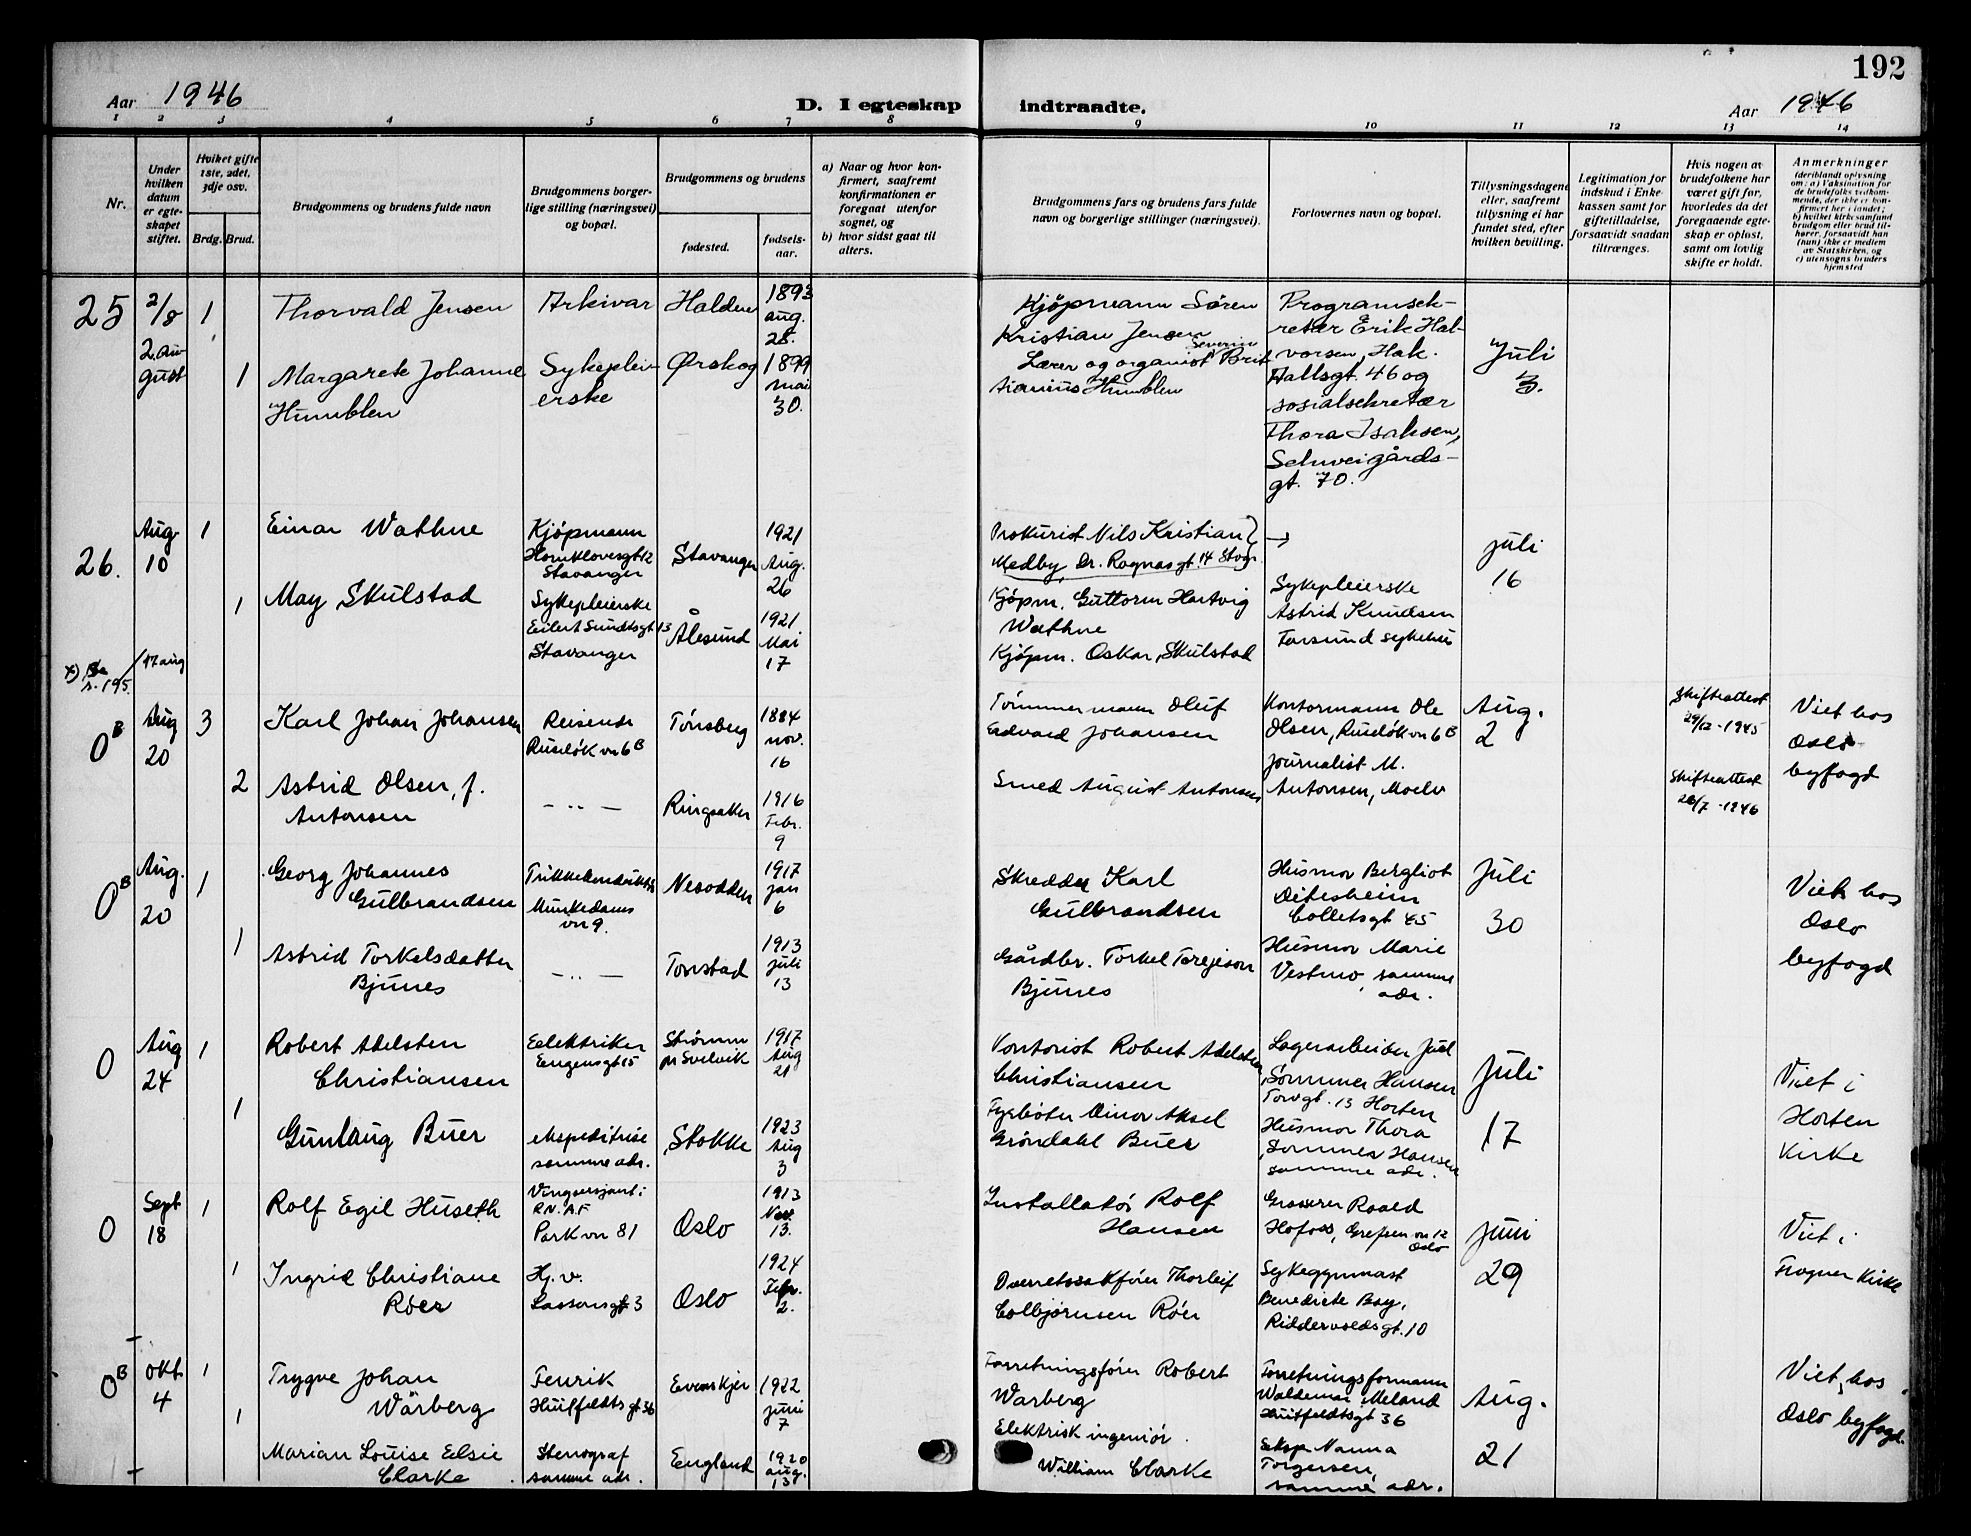 192
Aar 1946
D. I egteskap indtraadte.
Aar 1946
1 2 3 4 5 6 7 8 9 10 11 12 13 14
Nr.
Under hvilken datum er egteskapet stiftet.
Hvilket gifte 1ste, 2det, 3dje osv.
Brdg. Brud.
Brudgommens og brudens fulde navn
Brudgommens borgerlige stilling (næringsvei) og bopæl.
Brudgommens og brudens
fødested.
fødselsaar.
a) Naar og hvor konfirmert, saafremt konfirmationen er foregaat utenfor sognet, og
b) hvor sidst gaat til alters.
Brudgommens fars og brudens fars fulde navn og borgerlige stillinger (næringsvei).
Forlovernes navn og bopæl.
Tillysningsdagene eller, saafremt tillysning ei har fundet sted, efter hvilken bevilling.
Legitimation for indskud i Enkekassen samt for giftetilladelse, forsaavidt saadan tiltrænges.
Hvis nogen av brudefolkene har været gift før, hvorledes da det foregaaende egteskap er opløst, samt om lovlig skifte er holdt.
Anmerkninger (deriblandt oplysning om: a) Vaksination for de brudefolks vedkommende, der ikke er konfirmert her i landet; b) hvilket kirkesamfund brudgom eller brud tilhører, forsaavidt han (hun) ikke er medlem av Statskirken, og c) utensogns bruders hjemsted
25
2/8
2. August
1
Thorvald Jensen
Arkivar
Halden
1893
aug.
28.
Kjøpmann Søren
Kristian Jensen
Programsek-
retær Erik Hal-
vorsen, Hak.
Hallsgt. 46 og
sosialsekretær
Thora Isaksen,
Schweigårds-
gt. 70.
Juli
3.
1
Margarete Johanne
Humblen
Sykeplei-
erske
Ørskog
1899
mai
30.
Severin
Lærer og organist
Humblen
26.
Aug.
10
1
Einar Wathne
Kjøpmann
Stavanger
Stavanger
1921
Aug.
26
Prokurist Nils Kristian
Medby, Dr. Ragnasgt. 14 Stvgr.
Kjøpm. Guttorm Hartvig
Wathne
juli
16
1
May Skulstad
Sykepleierske
Eilert Sundtsgt 13
Stavanger
Ålesund
1921
Mai
17
Kjøpm. Oskar Skulstad
Sykepleierske
Astrid Knudsen
Farsund sykehus
s. 195.
17 aug
0 B
Aug
20
3
Karl Johan Johansen
Reisende
Ruseløk vn 6 B
Tønsberg
1884
nov.
16
Tømmermann Oluf
Edvard Johansen
Kontormann Ole
Olsen, Ruseløk vn 6 B
Aug.
2
Skifteattest
29/12-1945
Viet hos
Oslo
byfogd
2
Astrid Olsen, f.
Antonsen
— " —
Ringsaker
1916
Febr.
9
Smed August Antonsen
Journalist M.
Antonsen, Moelv
Skifteattest
26/7-1946
0 B
Aug.
20
1
Georg Johannes
Gulbrandsen
Munkedams
vn 9.
Nesodden
1917
jan
6
Skredder Karl
Gulbrandsen
Husmor Bergliot
Ditesheim
Colletsgt 45
Juli
30
Viet hos
Oslo
byfogd
1
Astrid Torkelsdatter
Bjunes
— " —
Tonstad
1913
juli
13
Gårdbr. Torkel Tarejeson
Bjunes
Husmor Marie
Vestmo, samme
adr.
0
Aug
24
1
Robert Adelsten
Christiansen
Elektriker
Eugensgt 15
Strømm
pr Svelvik
1917
Aug
21
Kontorist Robert Adelsten
Christiansen
Lagerarbeider Juel
Sommer Hansen
Torvgt. 13 Horten
Juli
17
Viet i
Horten
Kirke
1
Gunlaug Buer
ekspeditrise
samme adr.
Stokke
1923
Aug
3
Fyrbøter Einar Aksel
Grøndahl Buer
Husmor Thora
Sommer Hansen
samme adr.
0
Sept
18
1
Rolf Egil Huseth
Vingsersjant i
R.N.A.F
Parkvn 81
Oslo
1913
Nov.
13.
Installatør Rolf
Hansen
Grosserer Roald
Hofoss, Grefsen vn 12
Oslo
juni
29
Viet i
Frogner Kirke
1
Ingrid Christiane
Röer
Hj. v.
Lassonsgt 3
Oslo
1924
Febr.
2.
Overretssakfører Thorleif
Colbjørnsen Röer
Sykegymnast
Benedicte Boy,
Riddervoldsgt. 10
0 B
Okt
4
1
Trygve Johan
Wårberg
Fenrik
Huitfeldts gt 36
Evenskjer
1922
juni
7
Forretningsfører Robert
Warberg
Forretningsformann
Waldemar Meland
Huitfeldtsgt 36
Aug.
21
Viet hos
Oslo byfogd.
1
Marian Louise Elsie
Clarke
Stenograf
samme adr.
England
1920
aug.
13
Elektrisk ingeniør
William Clarke
Eksp. Nanna
Torgersen,
samme adr.